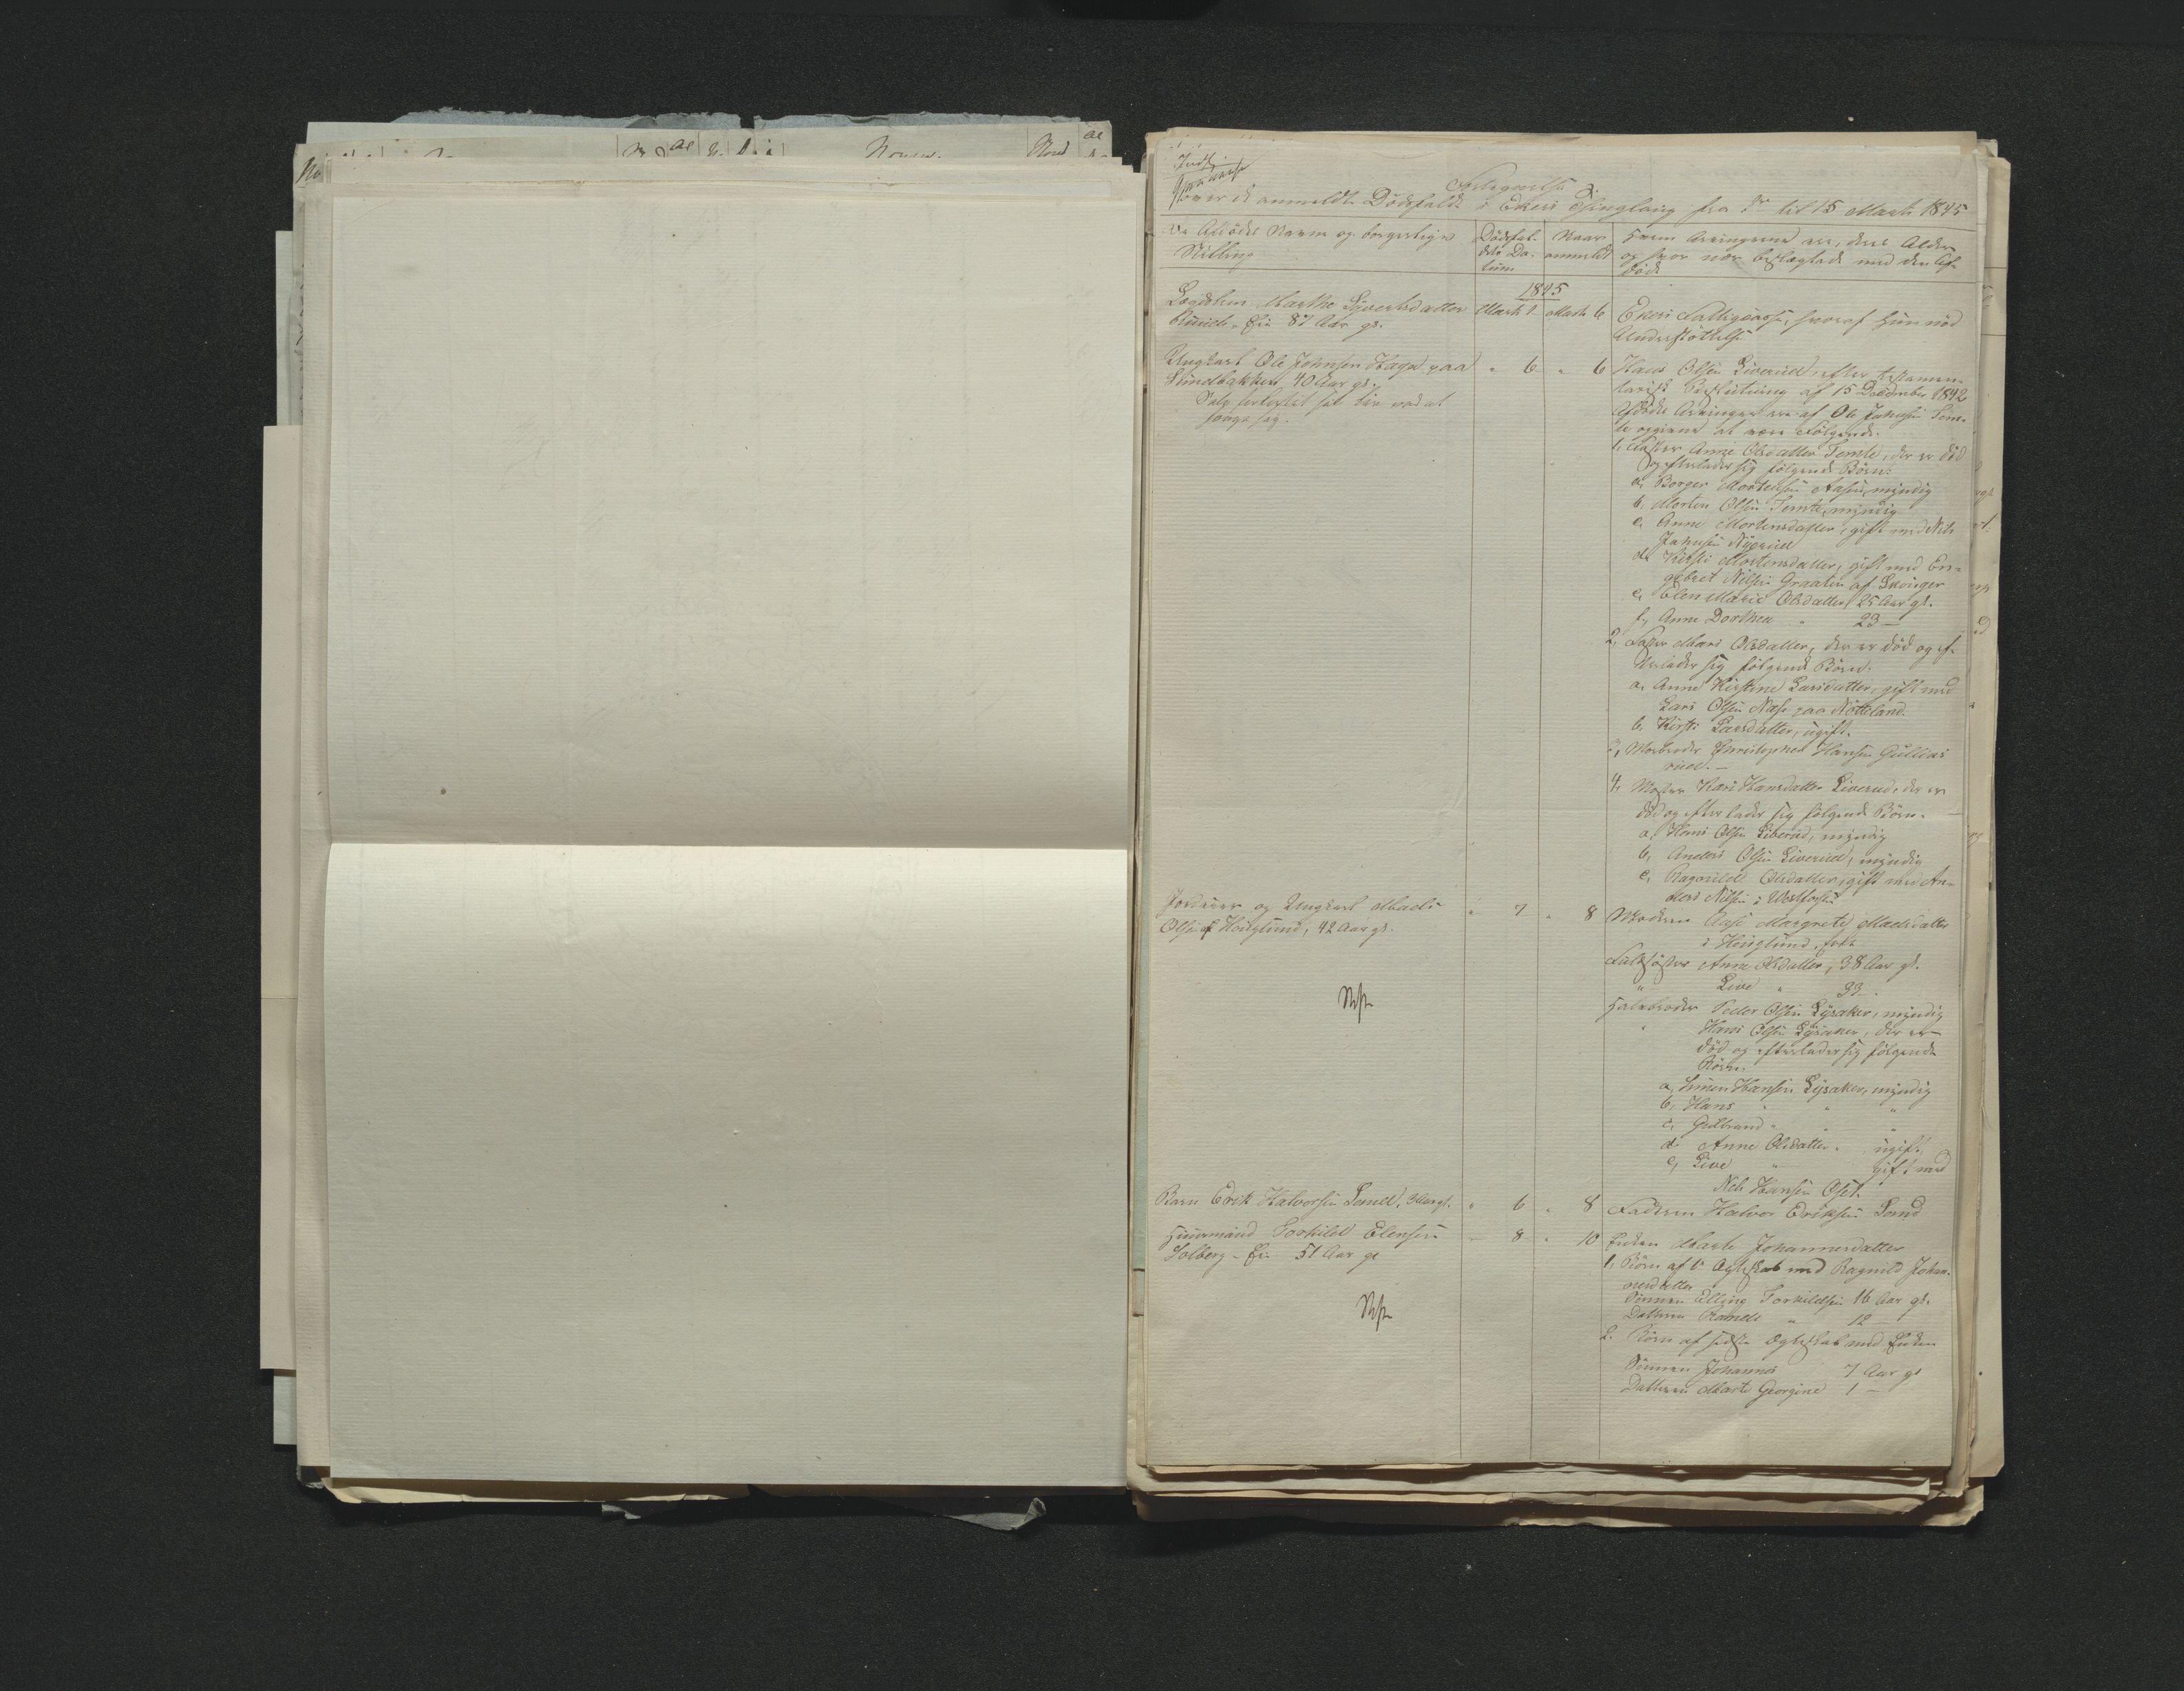 No
Fortegnelse
over de anmeldte Dödsfalde i Ekers Thinglaug fra 1ste til 15 Marts 1845
De Afdödes Navn og borgerlige
Stilling
Dödsfal-
dets Da-
tum
Naar
anmeldt
Hvem Arvingerne ere, deres Alder
og hvor nær beslægtede med den Af-
döde
1845
Lægdslem Marthe Syvertsdatter
87 Aar gl.
Marts 1
Marts 6
Ekers Fattigcasse, hvoraf hun nöd
Understöttelse
Ungkarl Ole Johnsen Hagen paa
Sundbakken, 40 Aar gl.
Selv forkortet sit Liv ved at
hænge sig.
" 6 " 6
Hans Olsen Liverud efter testamen-
tarisk Beslutning af 15 December 1842
Afdödes Arvinger ere af Ole Johnsen Tem-
te opgivne at være Fölgende:
1, Faster Anne Olsdatter Temte, der er död
og efterlader sig fölgende Börn:
a, Borger Mortensen Aasen, myndig
b, Morten Olsen Temte, myndig
c, Anne Mortensdatter, gift med Nils
Johnsen Nyerud
d, Kirsti Mortensdatter, gift med En-
gebret Nilsen Graaten af Skouger
e, Elen Marie Olsdatter, 25 Aar gl.
f, Anne Dorthea " 23 —
2, Faster Mari Olsdatter, der er död og ef-
terlader sig fölgende Börn:
a, Anne Kirstine Larsdatter, gift med
Lars Olsen Næss paa Nötteland.
b, Kirsti Larsdatter, ugift.
3, Morbroder Christopher Hansen Gullias
rud. —
4, Moster Kari Hansdatter Liverud, der er
död og efterlader sig fölgende Börn.
a, Hans Olsen Liverud, myndig
b, Anders Olsen Liverud, myndig
c, Ragnild Olsdatter, gift med An-
ders Nilsen i Vestfossen
Jordeier og Ungkarl Mads
Olsen af Houglund, 42 Aar gl.
" 7 " 8
Moderen Aase Margrete Madsdatter
i Houglund
Fuldsöster Anne Olsdatter, 38 Aar gl.
" Live " 33 —
Halvbroder Peder Olsen Lysaker, myndig
" Hans Olsen Lysaker, der er
död og efterlader sig fölgende
Börn.
a, Simen Hansen Lysaker, myndig
b, Hans " " "
c, Gulbrand " " "
d, Anne Olsdatter " ugift.
e, Live " gift med
Nils Hansen
Barn Erik Halvorsen Sand, 3 Aar gl.
" 6 " 8
Faderen Halvor Eriksen Sand
Huusmand Torkild Elensen
Solberg — 51 Aar gl
— 8 " 10
Enken Marte Johannesdatter
1, Börn af 1. Ægteskab med Ragnild Johan-
nesdatter
Sönnen Elling Torkildsen 16 Aar gl.
Datteren " 12 —
2. Börn af sidste Ægteskab med Enken
Sönnen Johannes 7 Aar gl
Datteren Marte Georgine 1 —